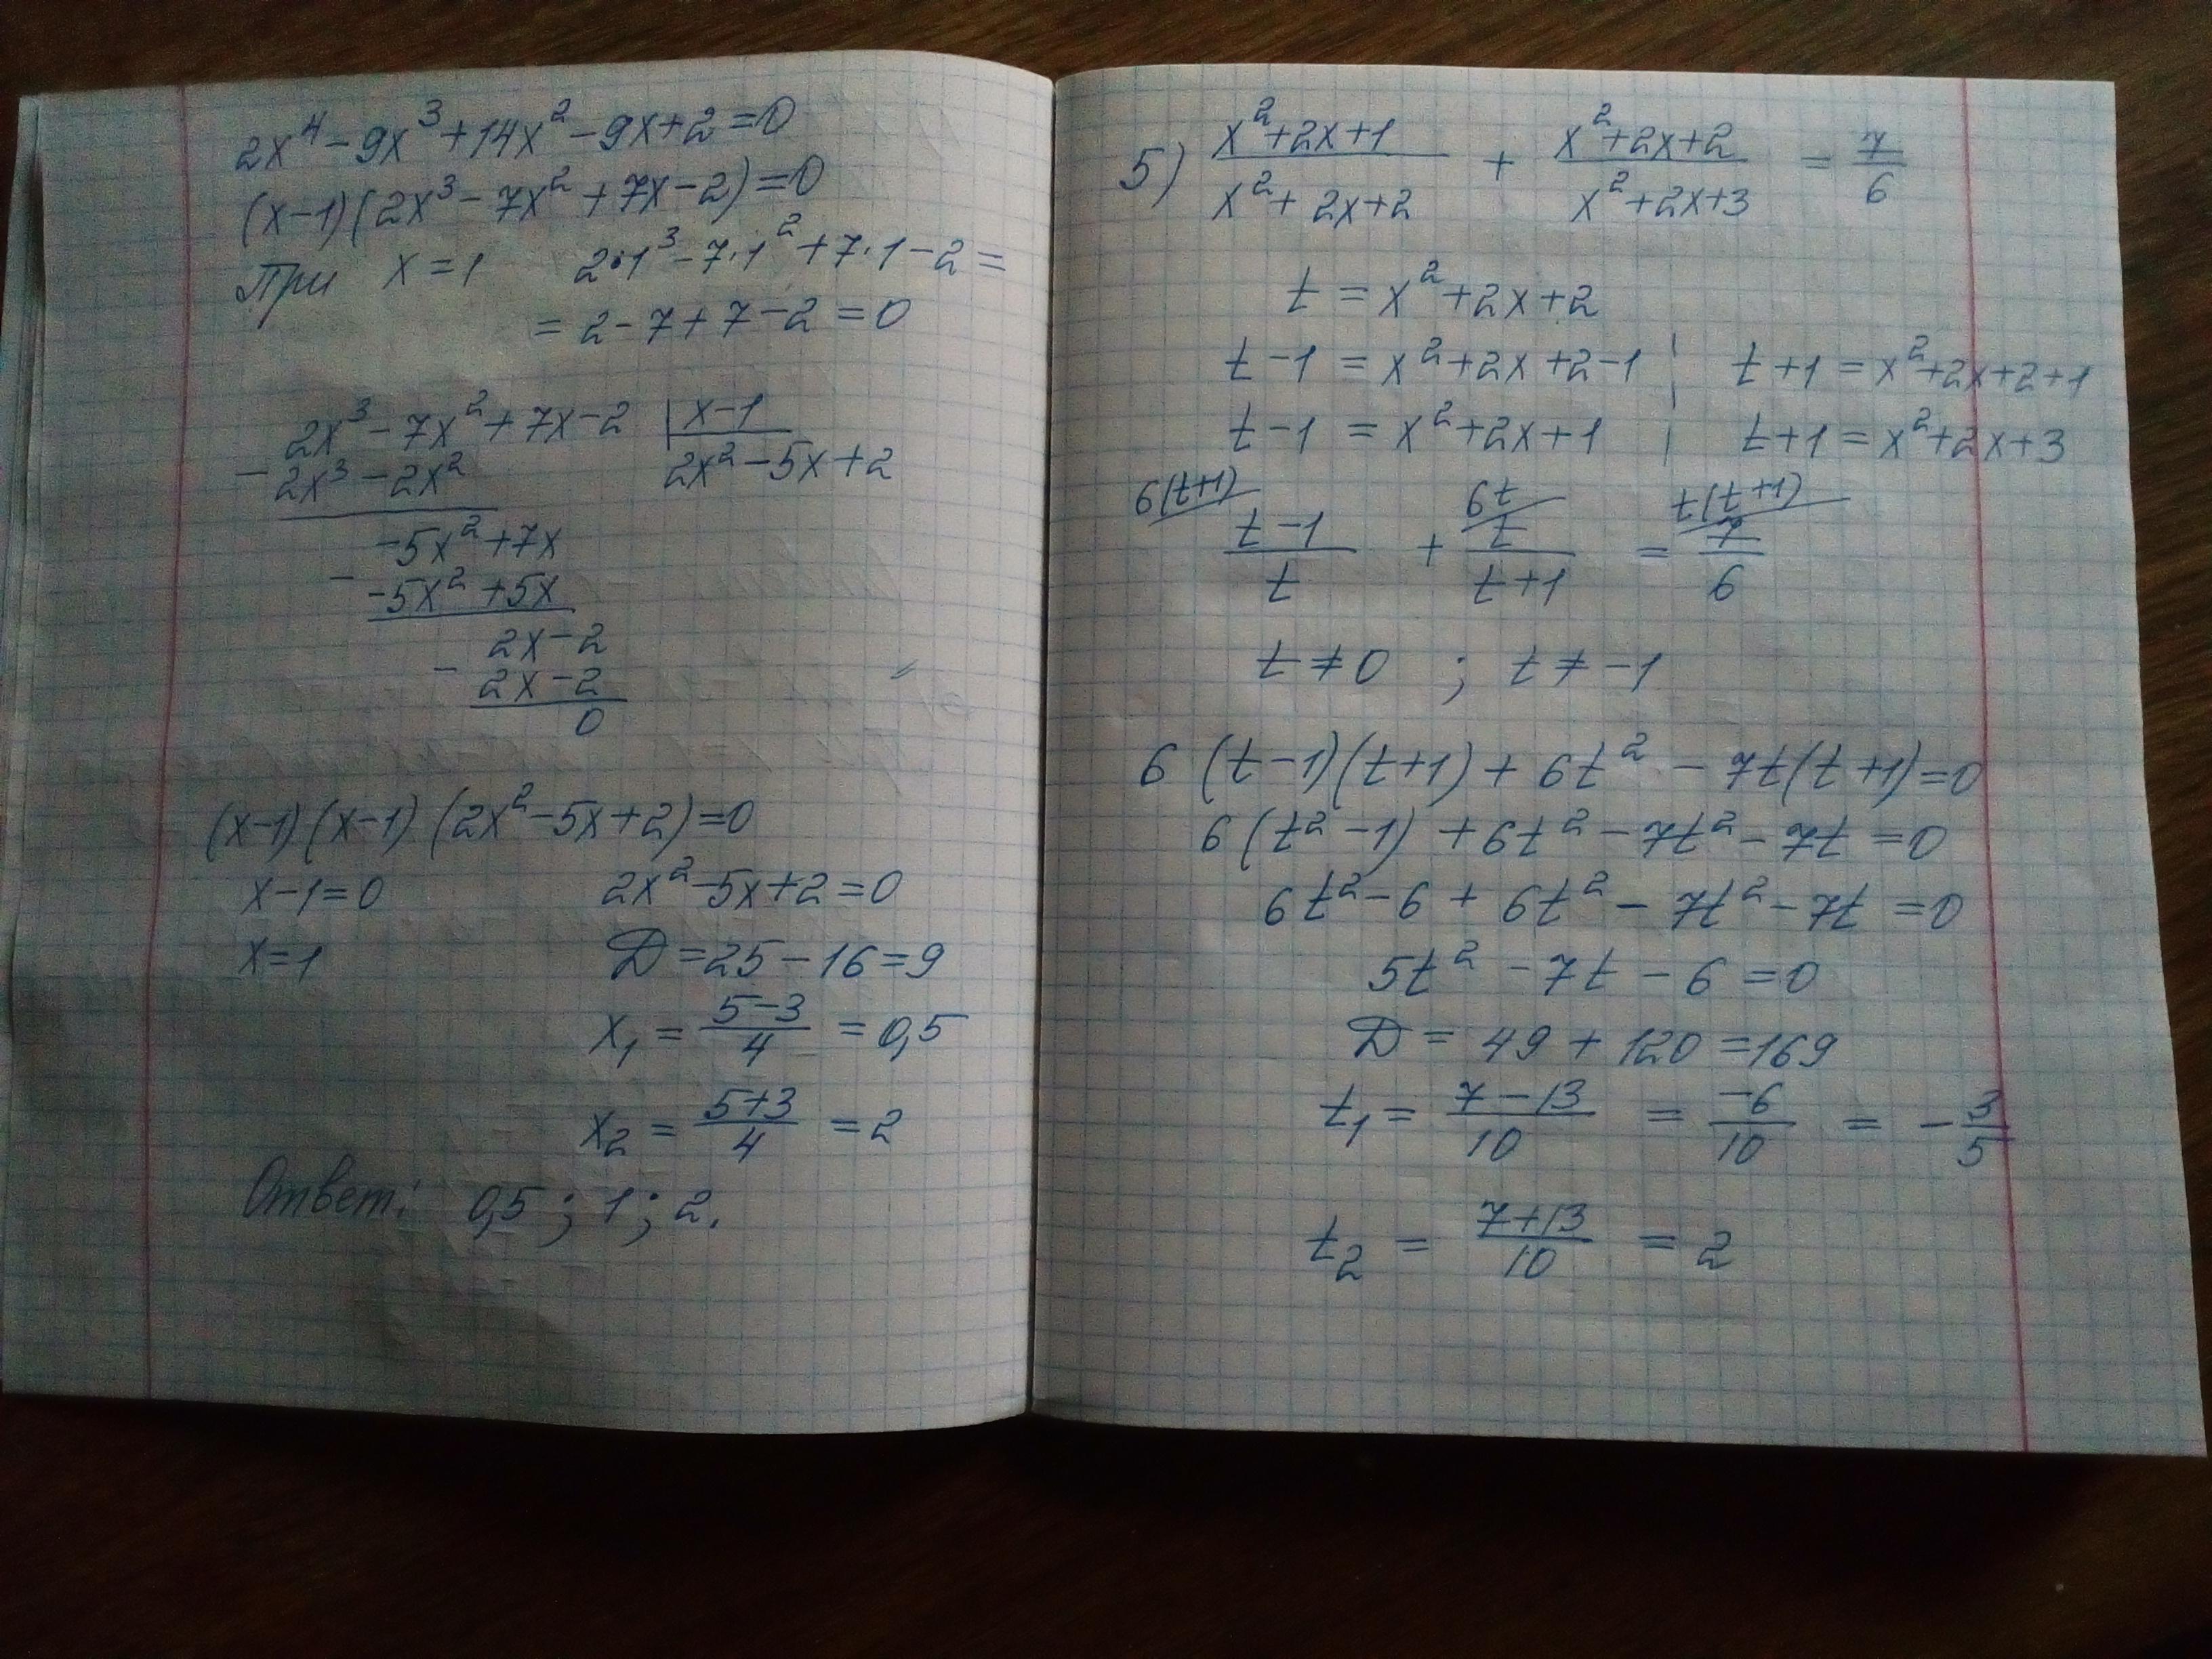 2x⁴ - 9x³ + 14x² - 9x + 2 = 0
(x-1)(2x³ - 7x² + 7x - 2) = 0
При x = 1 2·1³ - 7·1² + 7·1 - 2 =
= 2 - 7 + 7 - 2 = 0
2x³ - 7x² + 7x - 2 | x - 1
- 2x³ - 2x² 2x² - 5x + 2
-5x² + 7x
- -5x² + 5x
2x - 2
- 2x - 2
0
(x-1)(x-1)(2x² - 5x + 2) = 0
x - 1 = 0 2x² - 5x + 2 = 0
x = 1 D = 25 - 16 = 9
x₁ = (5-3)/4 = 0,5
x₂ = (5+3)/4 = 2
Ответ: 0,5; 1; 2.
5) (x²+2x+1)/(x²+2x+2) + (x²+2x+2)/(x²+2x+3) = 7/6
t = x² + 2x + 2
t - 1 = x² + 2x + 2 - 1 ¦ t + 1 = x² + 2x + 2 + 1
t - 1 = x² + 2x + 1 ¦ t + 1 = x² + 2x + 3
6(t+1) 6t t(t+1)
(t-1)/t + t/(t+1) = 7/6
t ≠ 0 ; t ≠ -1
6 (t-1)(t+1) + 6t² - 7t(t+1) = 0
6(t² - 1) + 6t² - 7t² - 7t = 0
6t² - 6 + 6t² - 7t² - 7t = 0
5t² - 7t - 6 = 0
D = 49 + 120 = 169
t₁ = (7-13)/10 = -6/10 = -3/5
t₂ = (7+13)/10 = 2